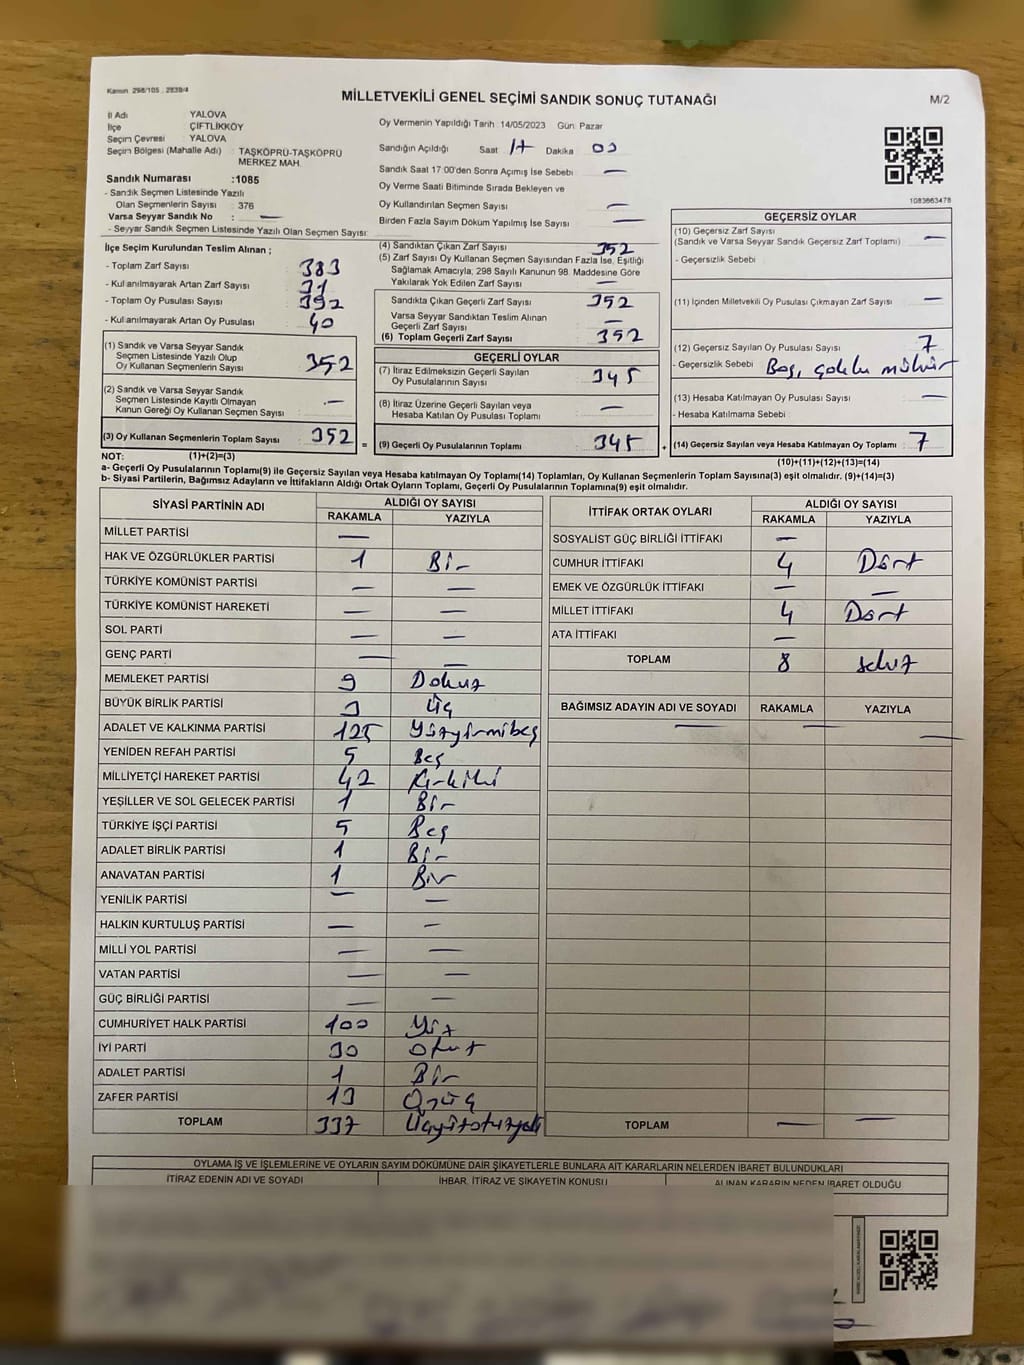 Kanun 298/105 , 2839/4
MİLLETVEKİLİ GENEL SEÇİMİ SANDIK SONUÇ TUTANAĞI
M/2
İl Adı YALOVA
İlçe ÇİFTLİKKÖY
Seçim Çevresi YALOVA
Seçim Bölgesi (Mahalle Adı) : TAŞKÖPRÜ-TAŞKÖPRÜ
MERKEZ MAH.
Sandık Numarası :1085
- Sandık Seçmen Listesinde Yazılı
Olan Seçmenlerin Sayısı : 376
Varsa Seyyar Sandık No : —
- Seyyar Seçmen Listesinde Yazılı Olan Seçmen Sayısı:
Oy Vermenin Yapıldığı Tarih :14/05/2023 Gün: Pazar
Sandığın Açıldığı Saat 17 Dakika 00
Sandık Saat 17:00'den Sonra Açımış İse Sebebi —
Oy Verme Saati Bitiminde Sırada Bekleyen ve
Oy Kullandırılan Seçmen Sayısı —
Birden Fazla Sayım Döküm Yapılmış İse Sayısı —
1083663478
İlçe Seçim Kurulundan Teslim Alınan ;
- Toplam Zarf Sayısı : 383
- Kullanılmayarak Artan Zarf Sayısı : 31
- Toplam Oy Pusulası Sayısı : 392
- Kullanılmayarak Artan Oy Pusulası : 40
(1) Sandık ve Varsa Seyyar Sandık
Seçmen Listesinde Yazılı Olup
Oy Kullanan Seçmenlerin Sayısı : 352
(2) Sandık ve Varsa Seyyar Sandık
Seçmen Listesinde Kayıtlı Olmayan
Kanun Gereği Oy Kullanan Seçmen Sayısı : —
(3) Oy Kullanan Seçmenlerin Toplam Sayısı : 352 =
(4) Sandıktan Çıkan Zarf Sayısı : 352
(5) Zarf Sayısı Oy Kullanan Seçmen Sayısından Fazla İse, Eşitliği
Sağlamak Amacıyla; 298 Sayılı Kanunun 98. Maddesine Göre
Yakılarak Yok Edilen Zarf Sayısı : —
Sandıkta Çıkan Geçerli Zarf Sayısı : 352
Varsa Seyyar Sandıktan Teslim Alınan
Geçerli Zarf Sayısı : —
(6) Toplam Geçerli Zarf Sayısı : 352
GEÇERLİ OYLAR
(7) İtiraz Edilmeksizin Geçerli Sayılan
Oy Pusulalarının Sayısı : 345
(8) İtiraz Üzerine Geçerli Sayılan veya
Hesaba Katılan Oy Pusulası Toplamı : —
(9) Geçerli Oy Pusulalarının Toplamı : 345 +
GEÇERSİZ OYLAR
(10) Geçersiz Zarf Sayısı : —
(Sandık ve Varsa Seyyar Sandık Geçersiz Zarf Toplamı)
- Geçersizlik Sebebi :
(11) İçinden Milletvekili Oy Pusulası Çıkmayan Zarf Sayısı : —
(12) Geçersiz Sayılan Oy Pusulası Sayısı : 7
- Geçersizlik Sebebi : Boş, çoklu mühür
(13) Hesaba Katılmayan Oy Pusulası Sayısı : —
- Hesaba Katılmama Sebebi :
(14) Geçersiz Sayılan veya Hesaba Katılmayan Oy Toplamı : 7
NOT: (1)+(2)=(3) (10)+(11)+(12)+(13)=(14)
a- Geçerli Oy Pusulalarının Toplamı(9) ile Geçersiz Sayılan veya Hesaba katılmayan Oy Toplamı(14) Toplamları, Oy Kullanan Seçmenlerin Toplam Sayısına(3) eşit olmalıdır. (9)+(14)=(3)
b- Siyasi Partilerin, Bağımsız Adayların ve İttifakların Aldığı Ortak Oyların Toplamı, Geçerli Oy Pusulalarının Toplamına(9) eşit olmalıdır.
SİYASİ PARTİNİN ADI ALDIĞI OY SAYISI
RAKAMLA YAZIYLA
MİLLET PARTİSİ —
HAK VE ÖZGÜRLÜKLER PARTİSİ 1 Bir
TÜRKİYE KOMÜNİST PARTİSİ — —
TÜRKİYE KOMÜNİST HAREKETİ — —
SOL PARTİ — —
GENÇ PARTİ — —
MEMLEKET PARTİSİ 9 Dokuz
BÜYÜK BİRLİK PARTİSİ 3 Üç
ADALET VE KALKINMA PARTİSİ 125 Yüzyirmibeş
YENİDEN REFAH PARTİSİ 5 Beş
MİLLİYETÇİ HAREKET PARTİSİ 42 Kırkiki
YEŞİLLER VE SOL GELECEK PARTİSİ 1 Bir
TÜRKİYE İŞÇİ PARTİSİ 5 Beş
ADALET BİRLİK PARTİSİ 1 Bir
ANAVATAN PARTİSİ 1 Bir
YENİLİK PARTİSİ — —
HALKIN KURTULUŞ PARTİSİ — —
MİLLİ YOL PARTİSİ — —
VATAN PARTİSİ — —
GÜÇ BİRLİĞİ PARTİSİ — —
CUMHURİYET HALK PARTİSİ 100 Yüz
İYİ PARTİ 30 Otuz
ADALET PARTİSİ 1 Bir
ZAFER PARTİSİ 13 Onüç
TOPLAM 337 Üçyüzotuzyedi
İTTİFAK ORTAK OYLARI ALDIĞI OY SAYISI
RAKAMLA YAZIYLA
SOSYALİST GÜÇ BİRLİĞİ İTTİFAKI —
CUMHUR İTTİFAKI 4 Dört
EMEK VE ÖZGÜRLÜK İTTİFAKI — —
MİLLET İTTİFAKI 4 Dört
ATA İTTİFAKI —
TOPLAM 8 sekiz
BAĞIMSIZ ADAYIN ADI VE SOYADI RAKAMLA YAZIYLA
— — —
TOPLAM — —
OYLAMA İŞ VE İŞLEMLERİNE VE OYLARIN SAYIM DÖKÜMÜNE DAİR ŞİKAYETLERLE BUNLARA AİT KARARLARIN NELERDEN İBARET BULUNDUKLARI
İTİRAZ EDENİN ADI VE SOYADI İHBAR, İTİRAZ VE ŞİKAYETİN KONUSU ALINAN KARARIN NEDEN İBARET OLDUĞU